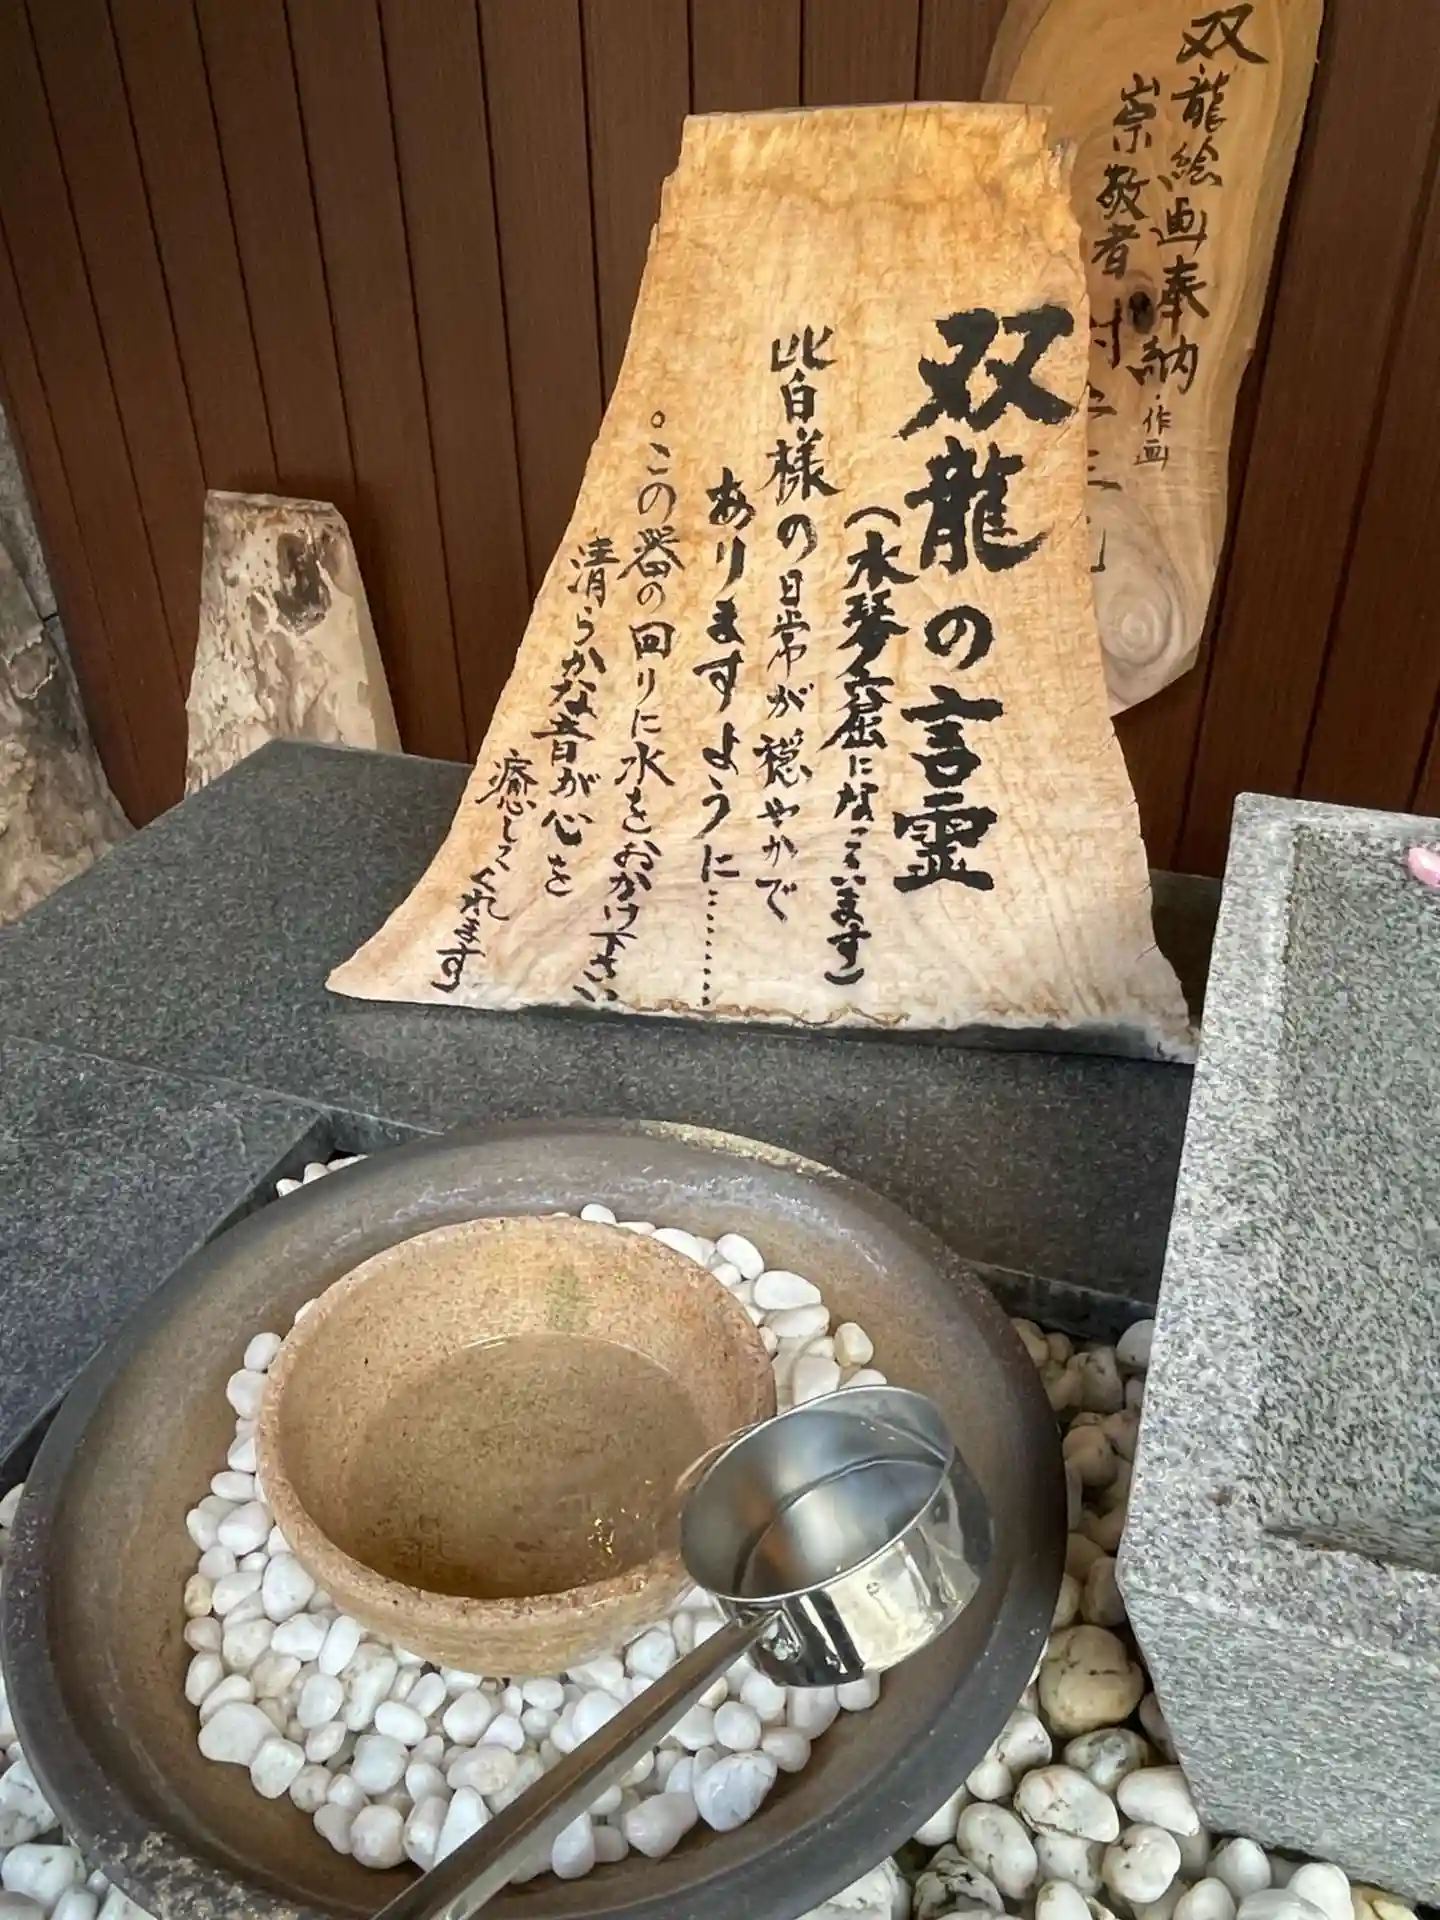 双龍の言霊
（水琴窟になっています）
皆様の日常が穏やかで
ありますように……
。この器の回りに水をおかけ下さい
清らかな音が心を
癒してくれます）
双龍絵画奉納・作画
崇敬者